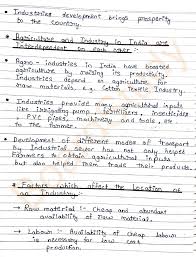 • Industries development brings prosperity
to the country.
• Agriculture and Industry in India are
interdependent on each other :-
• Agro - industries in India have boosted
agriculture by raising its productivity.
• Industries depend on agriculture for
raw materials. e.g. Cotton Textile Industry.
• Industries provides many agricultural inputs
like irrigation pump, fertilizers, insecticides
, PVC pipes, machinery and tools, etc
to the farmer.
• Development of different modes of transport
by industrial sector has not only helped
farmers to obtain agricultural inputs
but also helped them trade their products.
• Factors which affect the location of
an industry :-
→ Raw material :- Cheap and abundant
availability of raw material.
→ Labour :- Availability of cheap labour
is necessary for low cost
production.